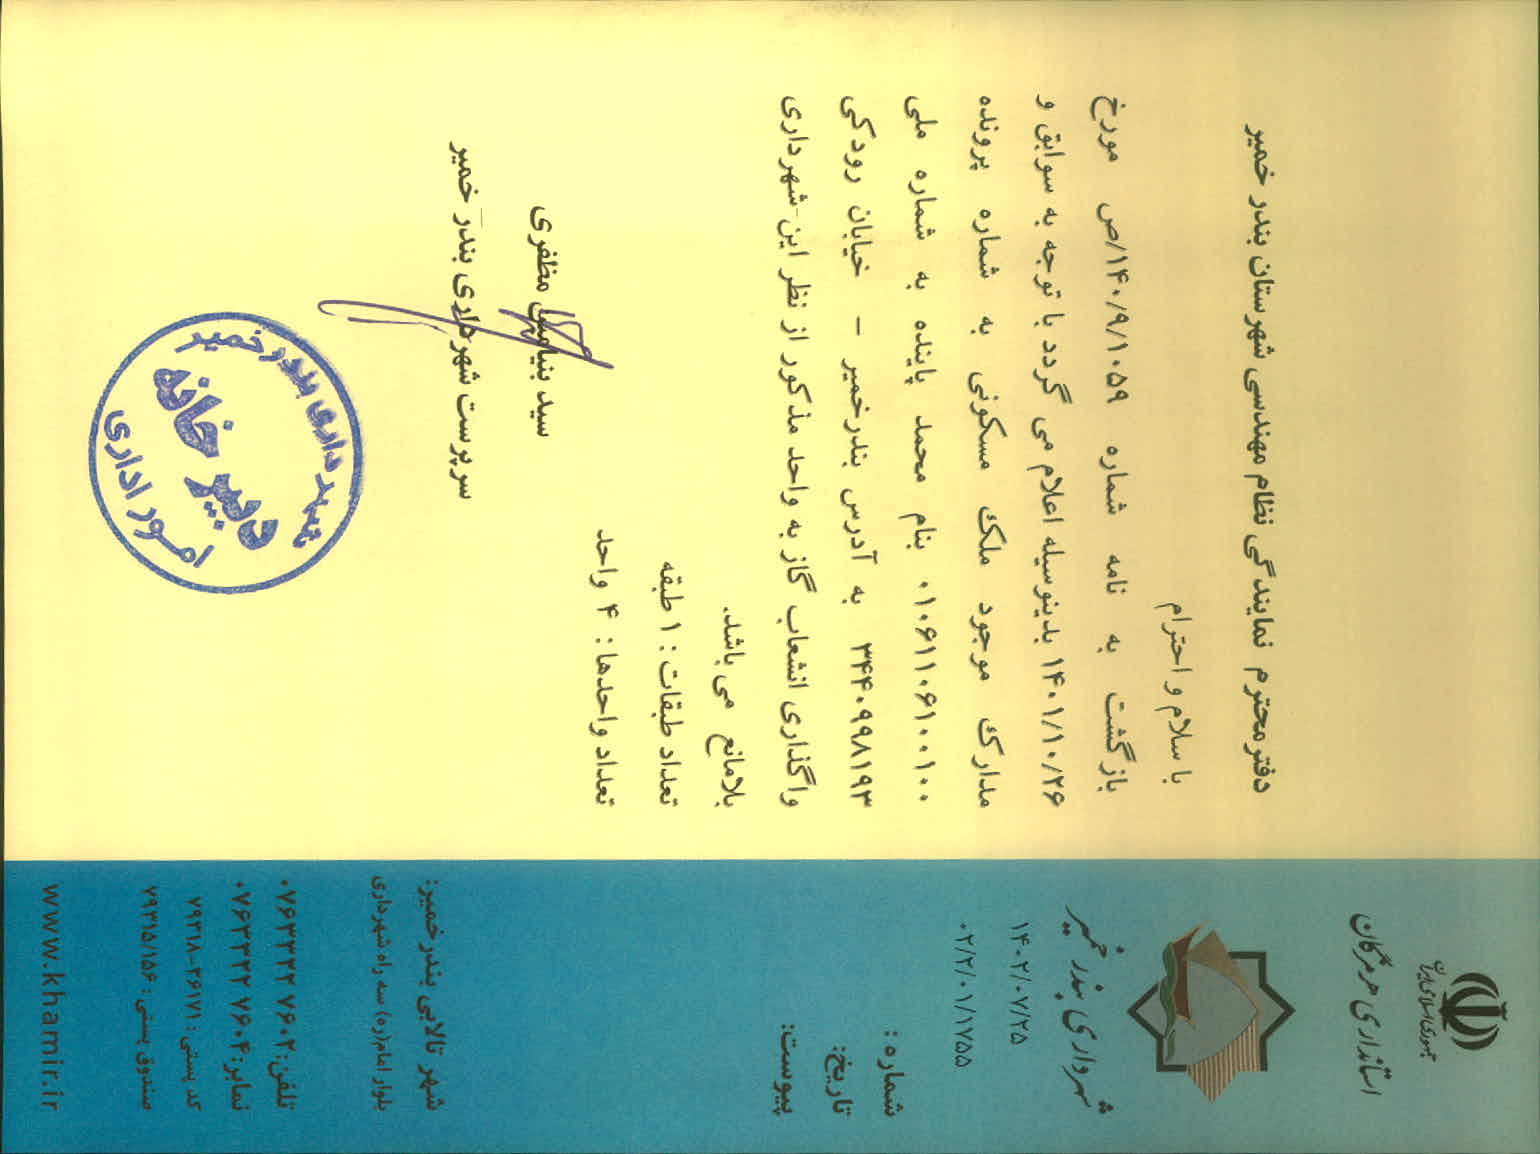 جمهوری اسلامی ایران
استانداری هرمزگان
شهرداری بندر خمیر
۱۴۰۲/۰۷/۲۵
۰۲/۲/۰۱/۱۷۵۵
شماره :
تاریخ:
پیوست:
دفتر محترم نمایندگی نظام مهندسی شهرستان بندر خمیر
با سلام و احترام
بازگشت به نامه شماره ۱۴۰/۹/۱۰۵۹/ص مورخ
۱۴۰۱/۱۰/۲۶ بدینوسیله اعلام می گردد با توجه به سوابق و
مدارک موجود ملک مسکونی به شماره پرونده
۰۱۰۶۱۱۰۶۱۰۰۱۰۰ بنام محمد پاینده به شماره ملی
۳۴۴۰۹۹۸۱۹۳ به آدرس بندرخمیر – خیابان رودکی
واگذاری انشعاب گاز به واحد مذکور از نظر این شهرداری
بلامانع می باشد.
تعداد طبقات : ۱ طبقه
تعداد واحدها : ۴ واحد
سید بنیامین مظفری
سرپرست شهرداری بندر خمیر
شهرداری بندر خمیر
دبیر خانه
امور اداری
شهر تالابی بندر خمیر:
بلوار امام(ره) سه راه شهرداری
تلفن: ۰۷۶۳۳۲۲ ۷۶۰۲
نمابر: ۰۷۶۳۳۲۲ ۷۶۰۴
کد پستی : ۲۶۱۷۱-۷۹۳۱۸
صندوق پستی : ۷۹۳۱۵/۱۵۶
www.khamir.ir